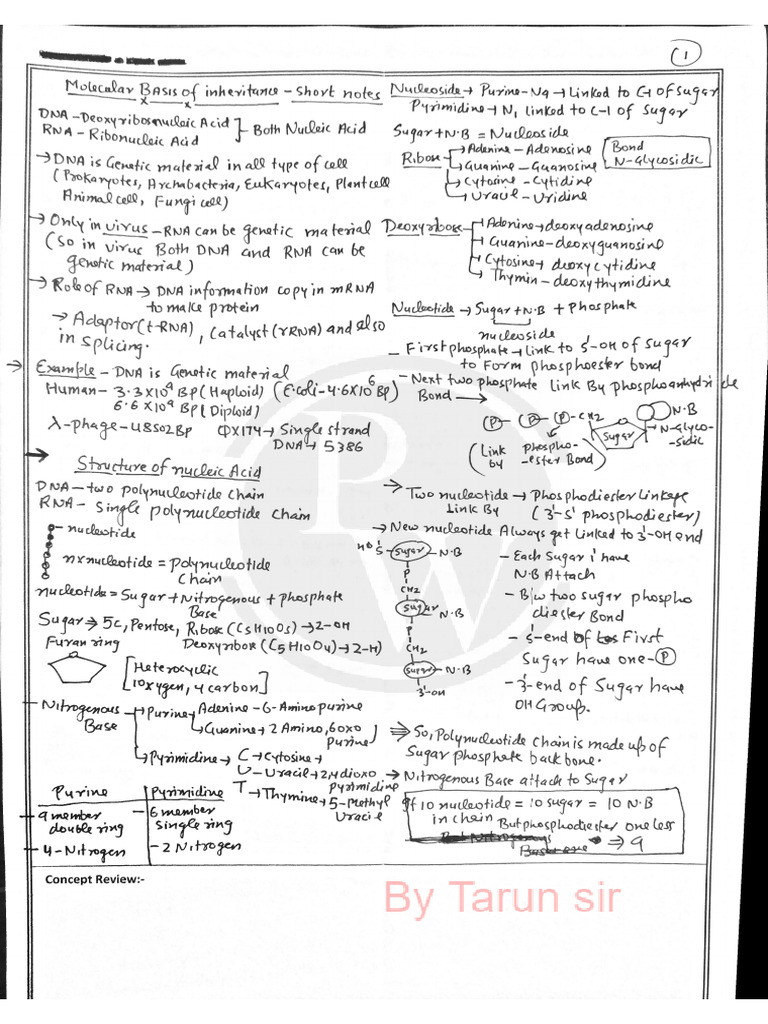 (1)
Molecular Basis of inheritance - short notes
DNA - Deoxyribonucleic Acid
RNA - Ribonucleic Acid
Both Nucleic Acid
→ DNA is Genetic material in all type of cell
(Prokaryotes, Archabacteria, Eukaryotes, Plant cell
Animal cell, Fungi cell)
→ Only in virus - RNA can be genetic material
(So in virus Both DNA and RNA can be
genetic material)
→ Role of RNA → DNA information copy in mRNA
to make protein
→ Adaptor (t-RNA), Catalyst (rRNA) and also
in Splicing.
→ Example - DNA is Genetic material
Human - 3.3×10⁹ BP (Haploid) (E.coli - 4.6×10⁶ BP)
6.6×10⁹ BP (Diploid)
λ-phage - 48502 BP ΦX174 → Single strand
DNA → 5386
→ Structure of nucleic Acid
DNA - two polynucleotide chain
RNA - Single polynucleotide chain
nucleotide
n×nucleotide = Polynucleotide
Chain
nucleotide = Sugar + Nitrogenous + phosphate
Base
Sugar → 5C, Pentose, Ribose (C5H10O5) → 2-OH
Furan ring Deoxyribose (C5H10O4) → 2-H)
[Heterocyclic
1 Oxygen, 4 carbon]
- Nitrogenous Base
→ Purine → Adenine - 6-Amino purine
Guanine → 2 Amino, 6 oxo
Purine
→ Pyrimidine → C → Cytosine →
U - Uracil → 2,4 dioxo
Pyrimidine
T → Thymine → 5-Methyl
Uracil
Purine Pyrimidine
- 9 member double ring - 6 member single ring
- 4-Nitrogen - 2 Nitrogen
Nucleoside → Purine - N9 → Linked to C-1 of sugar
Pyrimidine → N1 linked to C-1 of Sugar
Sugar + N.B = Nucleoside
Bond
N-Glycosidic
Ribose → Adenine - Adenosine
→ Guanine - Guanosine
→ Cytosine - Cytidine
→ Uracil - Uridine
Deoxyribose → Adenine → deoxyadenosine
Guanine - deoxyguanosine
Cytosine → deoxycytidine
Thymin - deoxythymidine
Nucleotide → Sugar + N.B + Phosphate
nucleoside
- First phosphate → link to 5'-OH of Sugar
to Form phosphoester bond
- Next two phosphate Link By phosphoanhydride
Bond →
P - P - P - CH2
Sugar
N.B
N-Glyco-
-sidic
(Link by Phospho-
-ester Bond)
→ Two nucleotide → Phosphodiester Linkage
Link By (3'-5' phosphodiester)
→ New nucleotide Always get Linked to 3'-OH end
5' Sugar - N.B
P
CH2
Sugar N.B
P
CH2
Sugar - N.B
3'-OH
- Each Sugar 1' have
N.B Attach
- B/w two sugar phospho
diester Bond
- 5'-end of First
Sugar have one - P
- 3'-end of Sugar have
OH Group.
⇒ So, Polynucleotide Chain is made up of
Sugar phosphate back bone.
→ Nitrogenous Base attach to Sugar
If 10 nucleotide = 10 sugar = 10 N.B
in chain But phosphodiester one less
⇒ 9
Concept Review:-
By Tarun sir